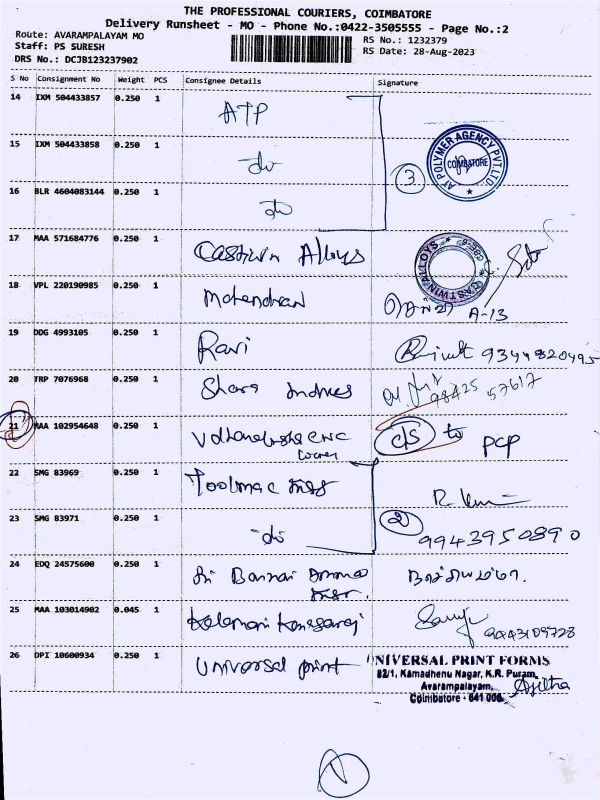 THE PROFESSIONAL COURIERS, COIMBATORE
Delivery Runsheet - MO - Phone No.:0422-3505555 - Page No.:2
Route: AVARAMPALAYAM MO
RS No.: 1232379
Staff: PS SURESH
RS Date: 28-Aug-2023
DRS No.: DCJB123237902
S No Consignment No Weight PCS Consignee Details Signature
14 IXM 504433857 0.250 1 ATP
15 IXM 504433858 0.250 1 do
3 AT POLYMER AGENCY PVT LTD COIMBATORE
16 BLR 4604083144 0.250 1 do
17 MAA 571684776 0.250 1 Castwin Alloys CASTWIN ALLOYS
18 VPL 220190985 0.250 1 Mohendran A-13
19 DDG 4993105 0.250 1 Ravi 9344820495
20 TRP 7076968 0.250 1 98425 57617
21 MAA 102954648 0.250 1 c/s to pcp
22 SMG 83969 0.250 1 Toolmac
23 SMG 83971 0.250 1 do 2 9943950890
24 EDQ 24575600 0.250 1 Sri Bannari
25 MAA 103014902 0.045 1 9443109728
26 DPI 10600934 0.250 1 Universal print
UNIVERSAL PRINT FORMS
82/1, Kamadhenu Nagar, K.R. Puram,
Avarampalayam,
Coimbatore - 641 006.